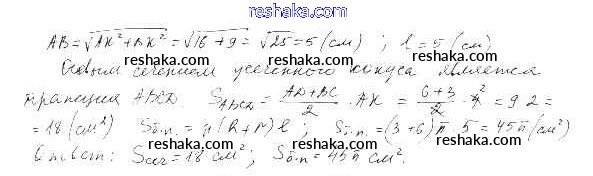 reshaka.com
AB = √AK² + BK² = √16 + 9 = √25 = 5 (см) ; l = 5 (см)
reshaka.com reshaka.com
Осевым сечением усеченного конуса является
reshaka.com reshaka.com
трапеция ABCD. S_ABCD = AD+BC/2 · AK = 6+3/2 · 4² = 9 2 =
= 18 (см²) Sб.п. = π(R+r)l ; Sб.п. = (3+6)π 5 = 45π (см²)
reshaka.com reshaka.com
Ответ: Sсеч = 18 см² ; Sб.п. = 45π см².
reshaka.com